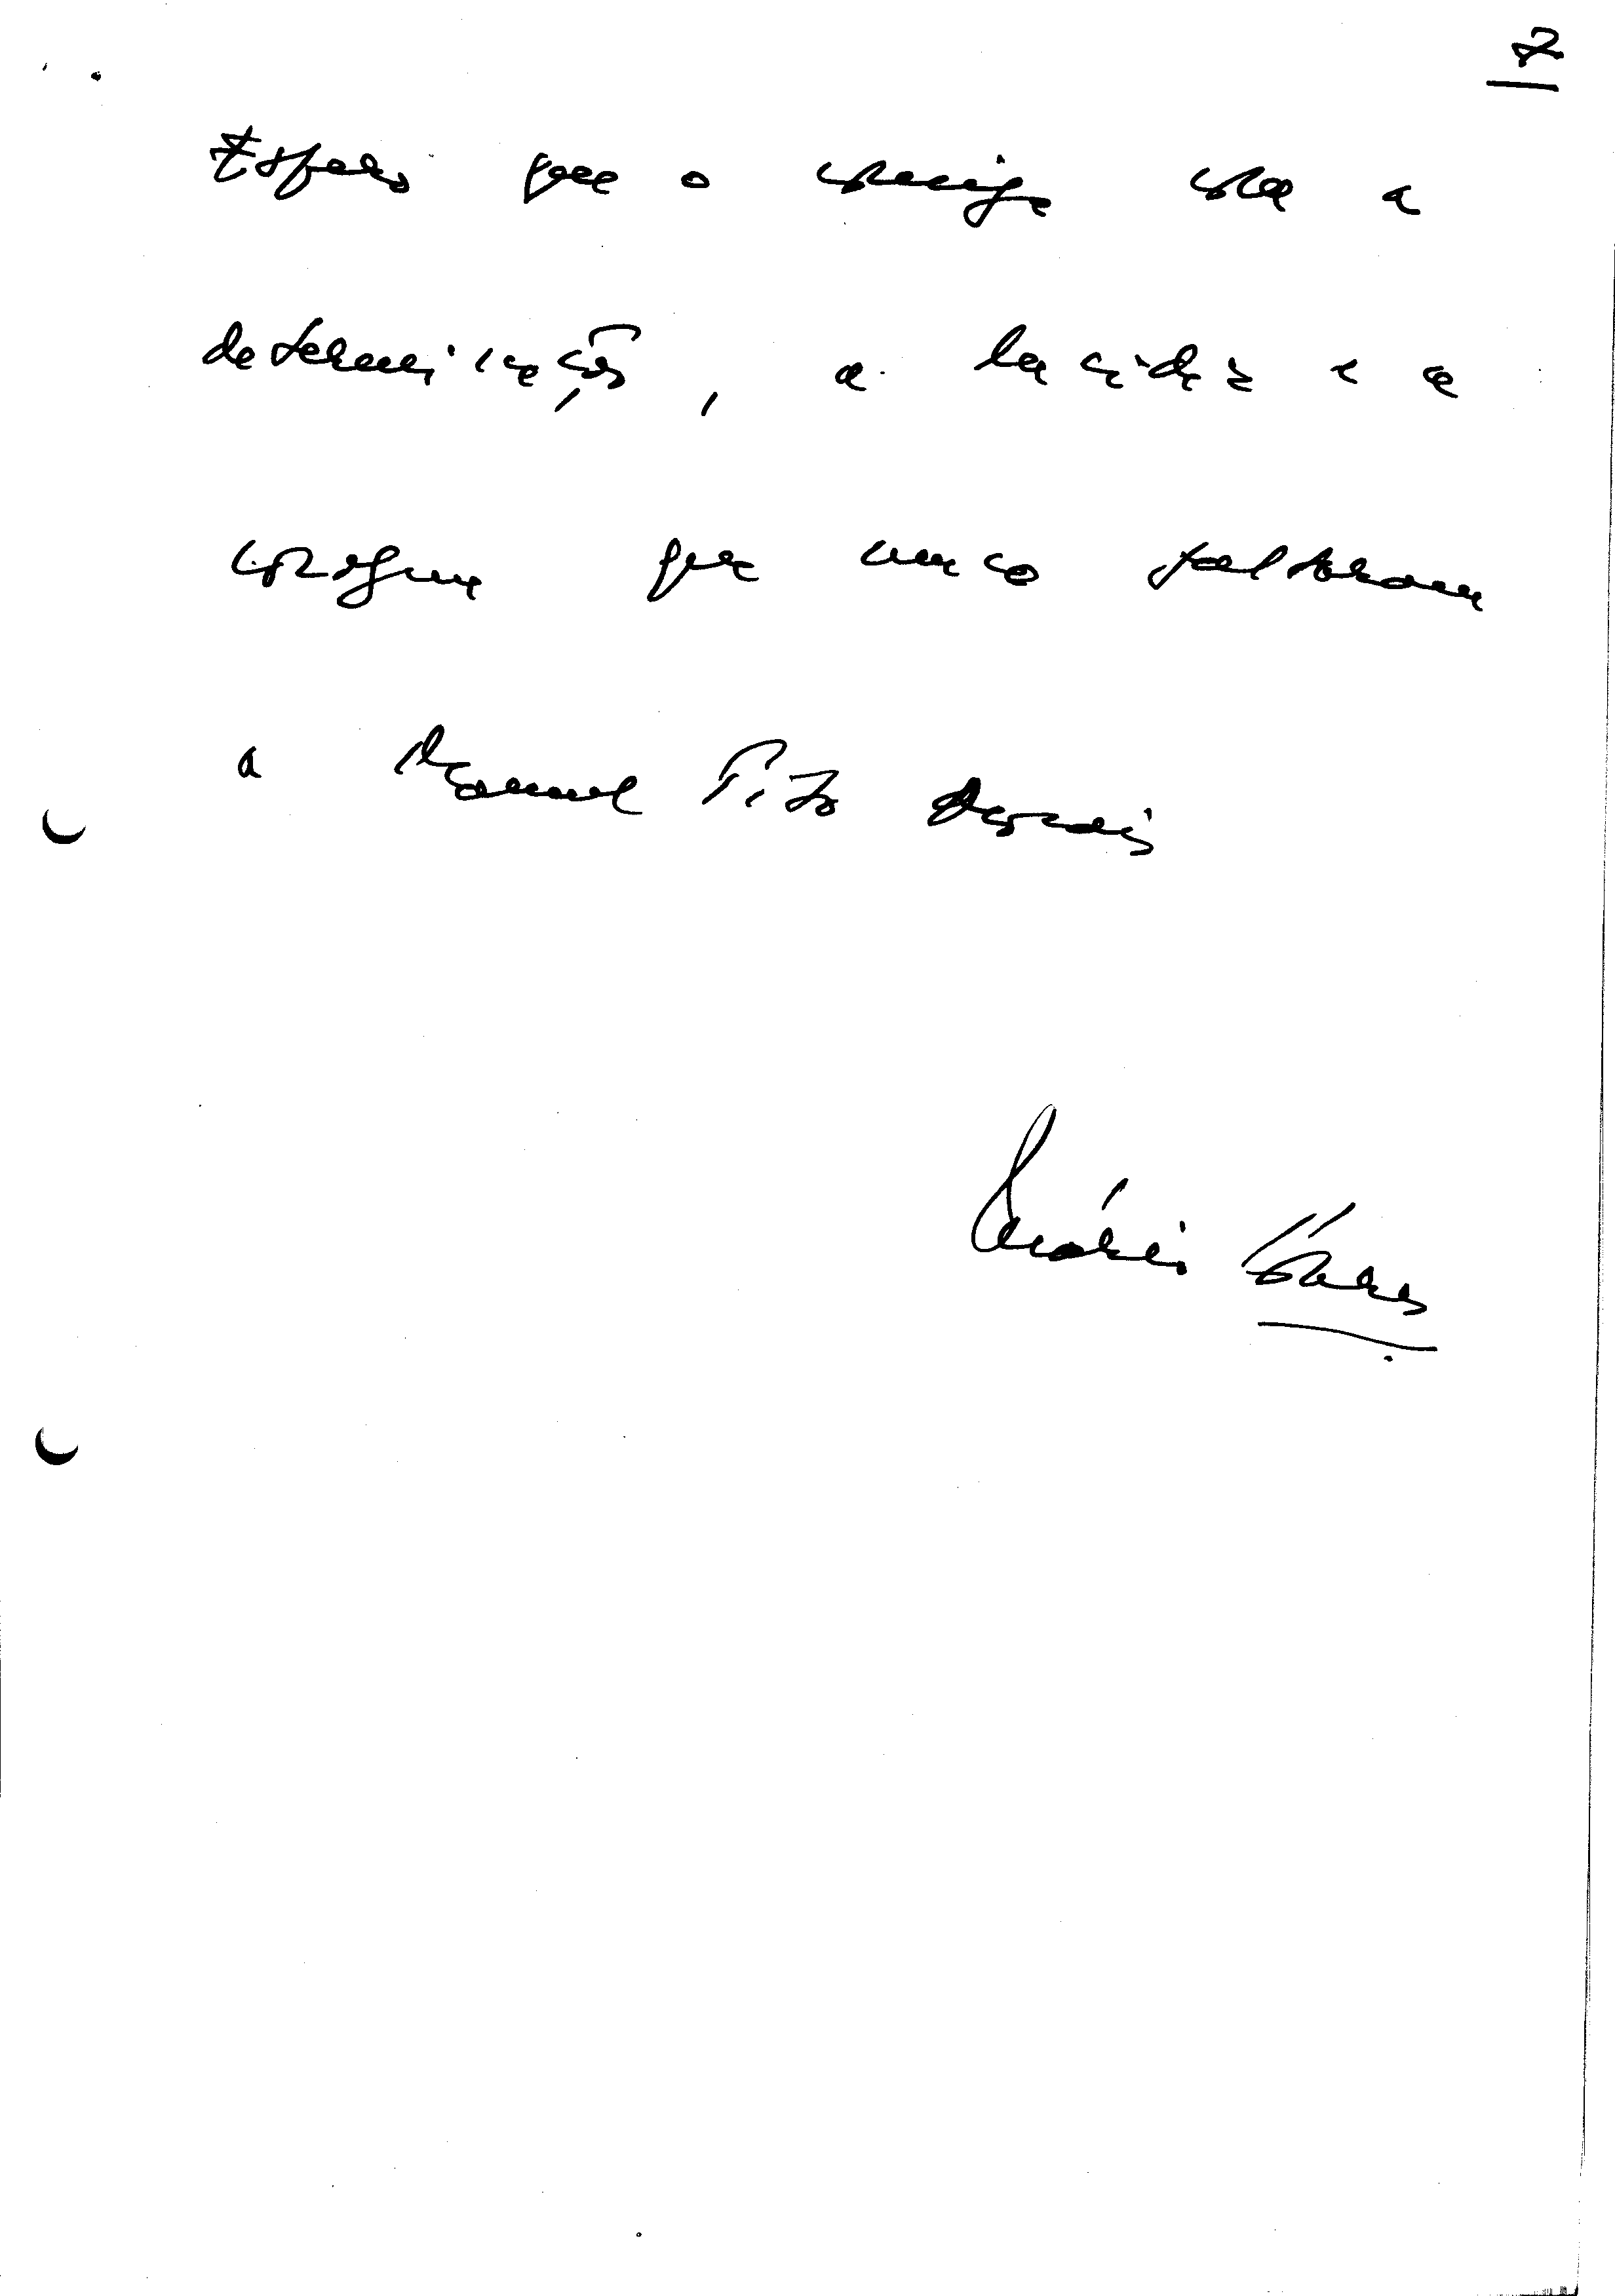 7
Espero que o consiga com a
determinação, a lucidez e a
coragem que nunca faltaram
a Manuel Tito Morais
Mário Soares